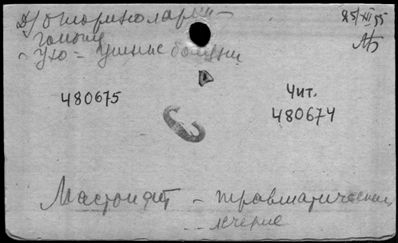 Д/ Оториноларин-
гологу
Ухо = ушные болезни
25/XII 55
480675
Чит.
480674
Мастоидит – травматический
лечение